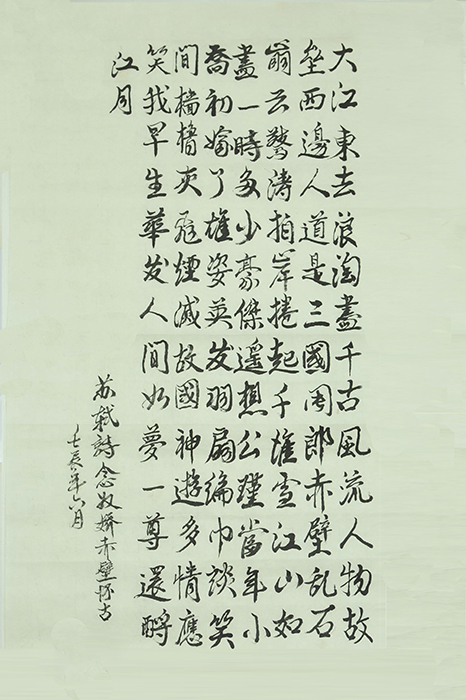 大江東去浪淘盡千古風流人物故
壘西邊人道是三國周郎赤壁乱石
崩云驚涛拍岸捲起千堆雪江山如
畫一時多少豪傑遙想公瑾當年小
喬初嫁了雄姿英发羽扇綸巾談笑
間檣櫓灰飛煙滅故國神遊多情應
笑我早生華发人間如夢一尊還酹
江月
苏軾詩念奴嬌赤壁怀古
壬辰年六月